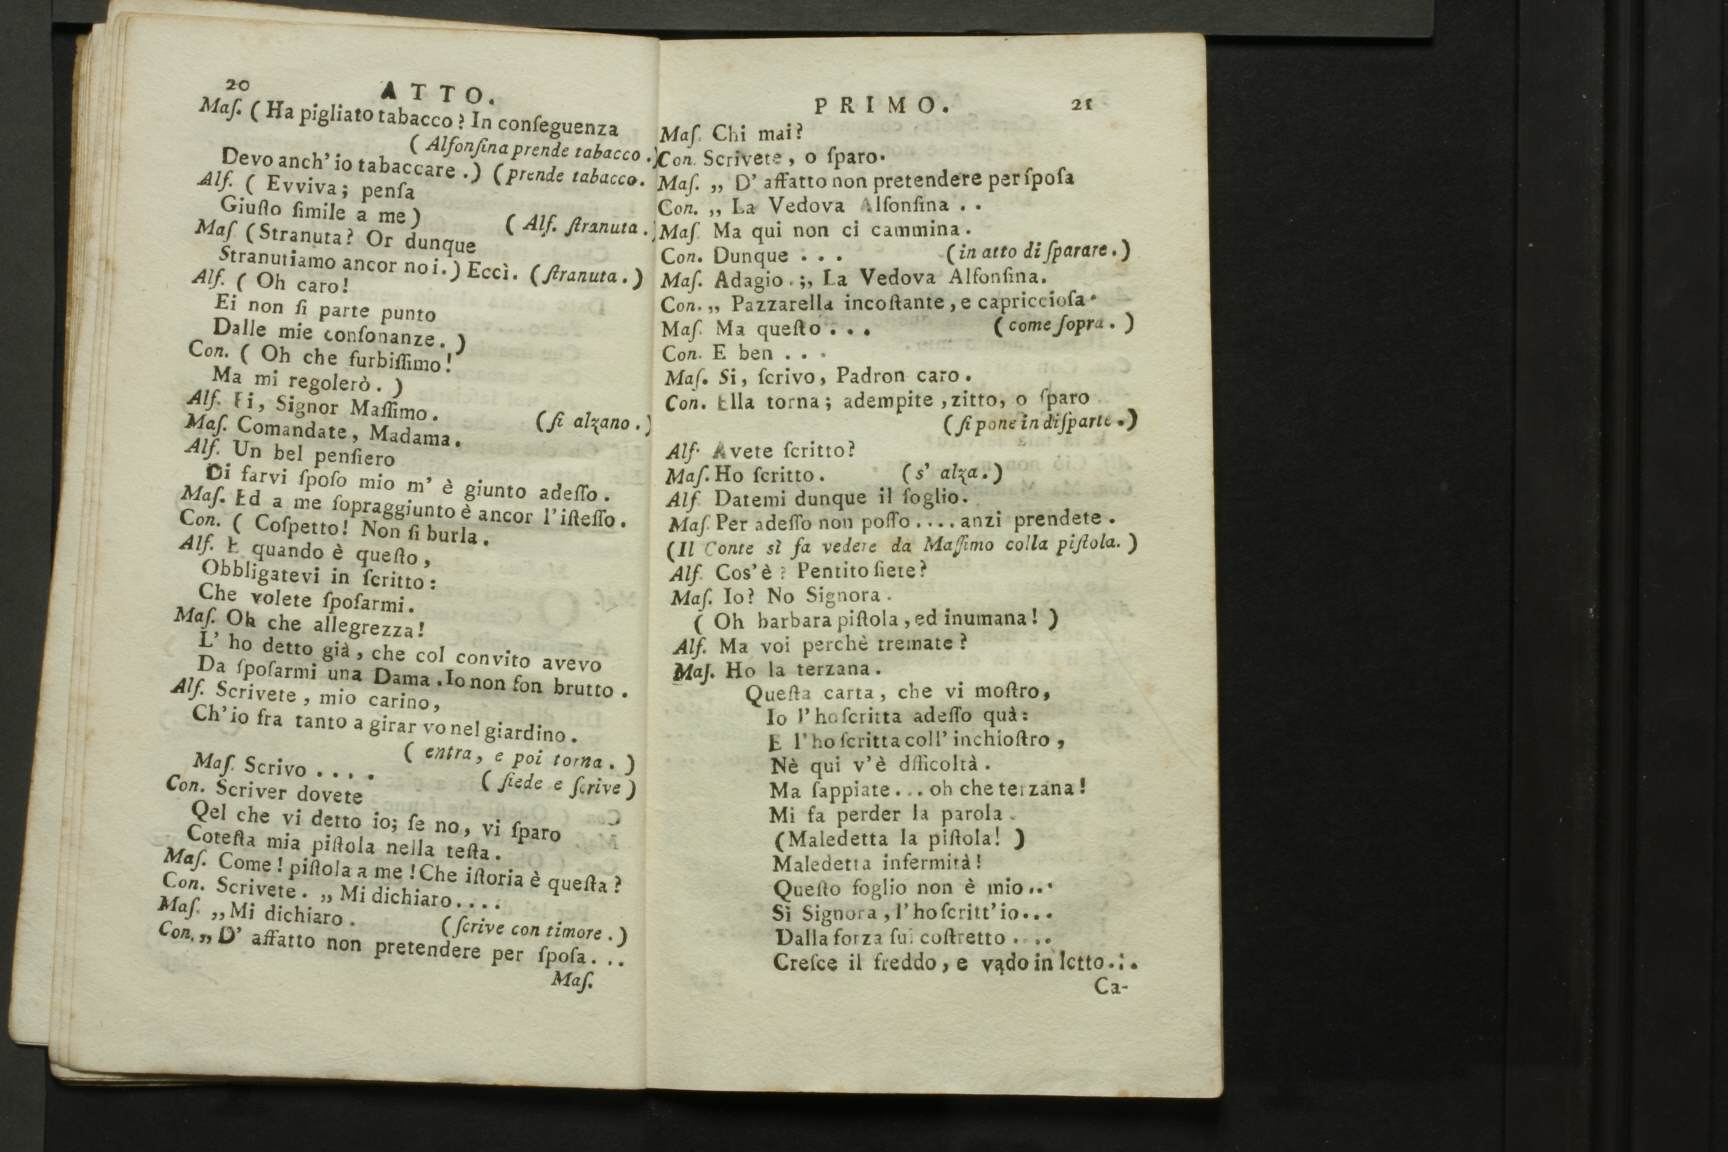 20
ATTO.
Maſ. ( Ha pigliato tabacco? In conſeguenza
( Alfonſina prende tabacco .)
Devo anch' io tabaccare .) (prende tabacco.
Alf. ( Evviva; penſa
Giuſto ſimile a me )
( Alf. ſtranuta .)
Maſ (Stranuta? Or dunque
Stranutiamo ancor noi.) Eccì. (ſtranuta.)
Alf. ( Oh caro!
Ei non ſi parte punto
Dalle mie conſonanze. )
Con. ( Oh che furbiſſimo!
Ma mi regolerò. )
Alf. Ei, Signor Maſſimo.
(ſi alzano .)
Maſ. Comandate, Madama.
Alf. Un bel penſiero
Di farvi ſpoſo mio m' è giunto adeſſo.
Maſ. Ed a me ſopraggiunto è ancor l'iſteſſo.
Con. ( Coſpetto! Non ſi burla.
Alf. E quando è queſto,
Obbligatevi in ſcritto:
Che volete ſpoſarmi.
Maſ. Oh che allegrezza!
L' ho detto già, che col convito avevo
Da ſpoſarmi una Dama. Io non ſon brutto.
Alf. Scrivete, mio carino,
Ch' io fra tanto a girar vo nel giardino.
( entra, e poi torna. )
Maſ. Scrivo ....
( ſiede e ſcrive )
Con. Scriver dovete
Qel che vi detto io; ſe no, vi ſparo
Coteſta mia piſtola nella teſta.
Maſ. Come! piſtola a me! Che iſtoria è queſta?
Con. Scrivete. „ Mi dichiaro....
Maſ. „ Mi dichiaro.
(ſcrive con timore.)
Con. „ D' affatto non pretendere per ſpoſa...
Maſ.
PRIMO.
21
Maſ. Chi mai?
Con. Scrivete, o ſparo.
Maſ. „ D' affatto non pretendere per ſpoſa
Con. „ La Vedova Alfonſina ..
Maſ. Ma qui non ci cammina.
Con. Dunque ...
(in atto di ſparare.)
Maſ. Adagio.;, La Vedova Alfonſina.
Con. „ Pazzarella incoſtante, e capriccioſa.
Maſ. Ma queſto...
(come ſopra. )
Con. E ben ...
Maſ. Si, ſcrivo, Padron caro.
Con. Ella torna; adempite, zitto, o ſparo
(ſi pone in diſparte.)
Alf. Avete ſcritto?
Maſ. Ho ſcritto.
(s' alza.)
Alf. Datemi dunque il foglio.
Maſ. Per adeſſo non poſſo.... anzi prendete.
(Il Conte sì fa vedere da Maſſimo colla piſtola. )
Alf. Cos'è? Pentito ſiete?
Maſ. Io? No Signora.
( Oh barbara piſtola, ed inumana! )
Alf. Ma voi perchè tremate?
Maſ. Ho la terzana.
Queſta carta, che vi moſtro,
Io l'ho ſcritta adeſſo quà:
E l'ho ſcritta coll' inchioſtro,
Nè qui v'è dfficoltà.
Ma ſappiate... oh che terzana!
Mi fa perder la parola.
(Maledetta la piſtola! )
Maledetta infermità!
Queſto foglio non è mio...
Sì Signora, l'ho ſcritt'io...
Dalla forza fui coſtretto....
Creſce il freddo, e vado in letto.:.
Ca-